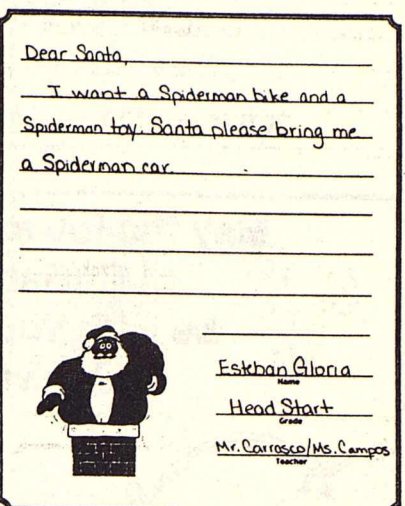 Dear Santa,
I want a Spiderman bike and a
Spiderman toy. Santa please bring me
a Spiderman car.
Esteban Gloria
Name
Head Start
Grade
Mr. Carrasco/Ms. Campos
Teacher